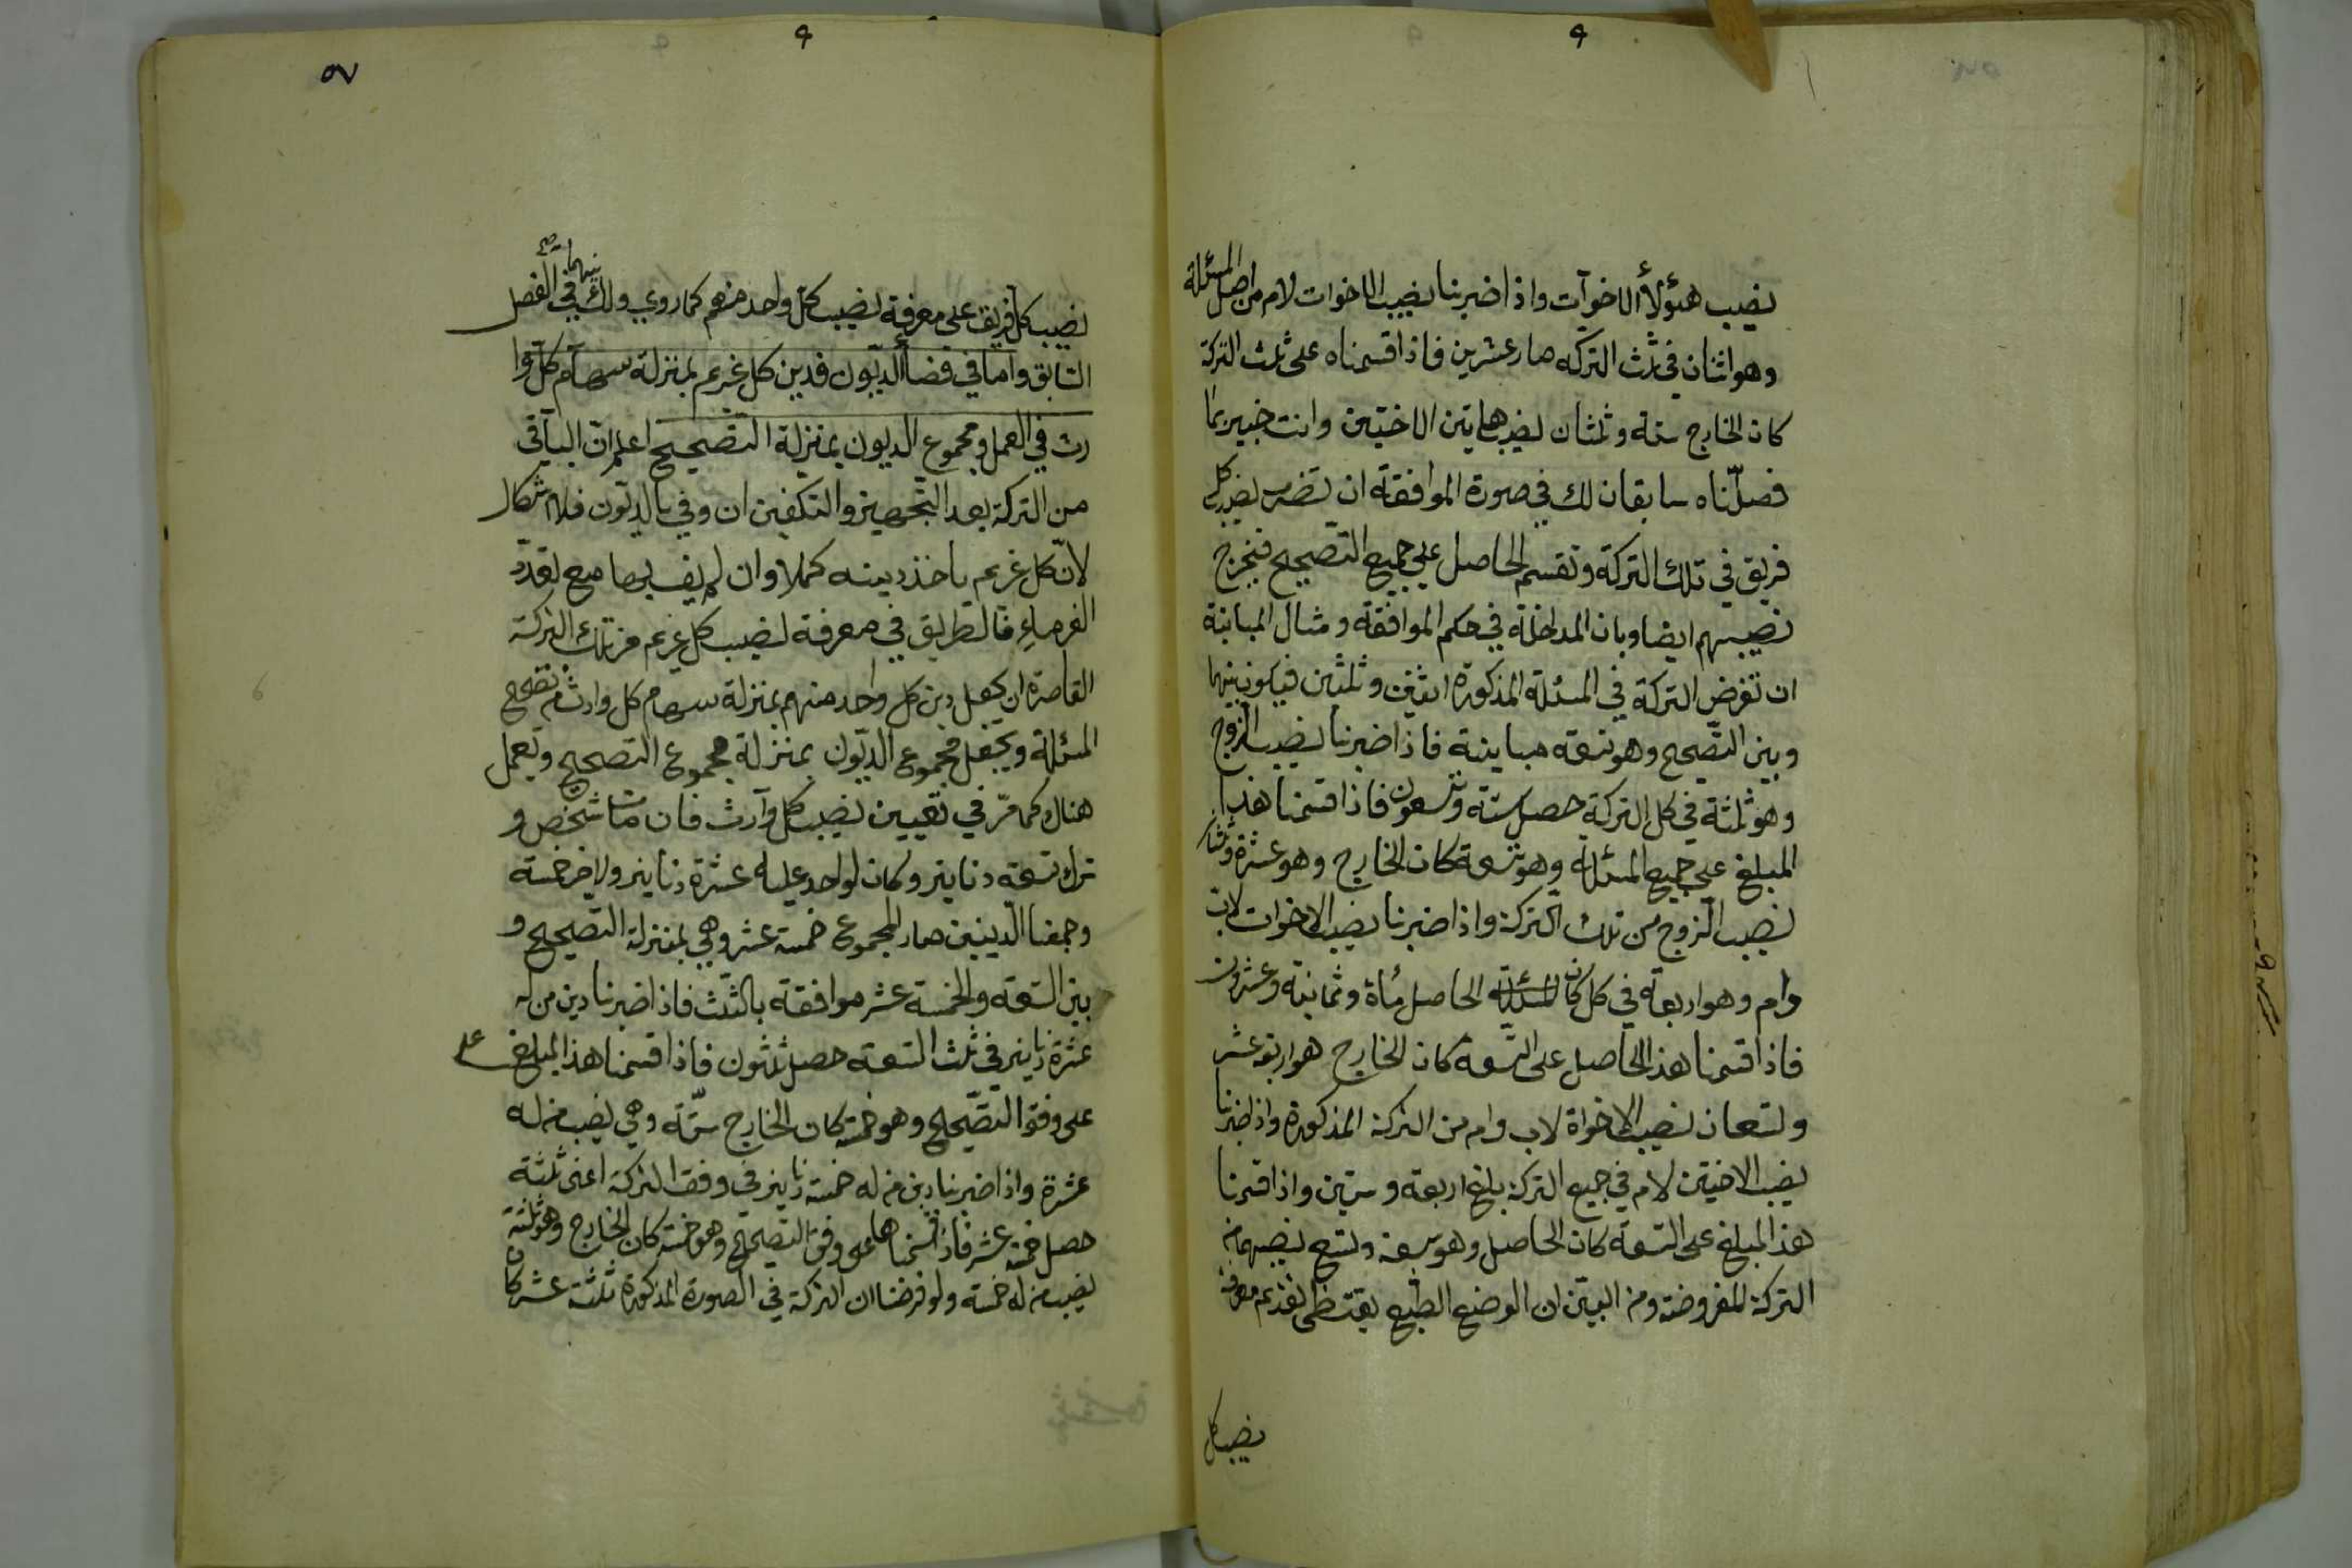 نصيب هؤلاء الاخوات واذا ضربنا نصيب الاخوات لام من اصل المسئلة
وهو اثنان في ثلث التركه صار عشرين فاذا قسمناه على ثلث التركة
كان الخارج ستة وثلثان نصيب هاتين الاختين وانت خبير بما
فصلّناه سابقا ان لك في صورة الموافقة ان تضرب نصيب كل
فريق في تلك التركة وتقسم الحاصل على جميع التصحيح فيخرج
نصيبهم ايضا وبان المداخلة في حكم الموافقة ومثال المباينة
ان تفرض التركة في المسئلة المذكورة اثنين وثلثين فيكون بينهما
وبين التصحيح وهو تسعة مباينة فاذا ضربنا نصيب الزوج
وهو ثلثة في كل التركة حصل ستة وتسعون فاذا قسمنا هذا
المبلغ على جميع المسئلة وهو تسعة كان الخارج وهو عشرة وثلثان
نصيب الزوج من تلك التركة واذا ضربنا نصيب الاخوات لاب
وام وهو اربعة في كل كان الحاصل مأة وثمانية وعشرون
فاذا قسمنا هذا الحاصل على التسعة كان الخارج هو اربعة عشر
وتسعان نصيب الاخواة لاب وام من التركة المذكورة واذا ضربنا
نصيب الاختين لام في جميع التركة بلغ اربعة وستين واذا قسمنا
هذا المبلغ على التسعة كان الحاصل وهو سبعة وتسع نصيبهما من
التركة المفروضة ومن البيّن ان الوضع الطبع يقتظى تقديم معرفة
نصيب كل
٥٧
نصيب كل فريق على معرفة نصيب كل واحد منهم كما روي ذلك فيهما في الفصل
السابق واما في قضاء الديون فدين كل غريم بمنزلة سهام كل وا
رث في العمل ومجموع الديون بمنزلة التصحيح اعلم ان الباقي
من التركة بعد التجهيز والتكفين ان وفي بالديون فلا اشكال
لانّ كل غريم ياخذ دينه كملا وان لم يف بها مع تعدد
الغرماء فالطريق في معرفة نصيب كل غريم من تلك التركة
القاصرة ان يجعل دين كل واحد منهم بمنزلة سهام كل وارث من تصحيح
المسئلة ويجعل مجموع الديون بمنزلة مجموع التصحيح ويعمل
هناك كما مرّ في تعيين نصيب كل وارث فان مات شخص و
ترك تسعة دنانير وكان لواحد عليه عشرة دنانير ولاخر خمسة
وجمعنا الدينين صار المجموع خمسة عشر وهي بمنزلة التصحيح و
بين التسعة والخمسة عشر موافقة بالثلث فاذا ضربنا دين من له
عشرة دنانير في ثلث التسعة حصل ثلثون فاذا قسمنا هذا المبلغ على
على وفق التصحيح وهو خمسة كان الخارج ستّة وهي نصيب من له
عشرة واذا ضربنا دين من له خمسة دنانير في وفق التركة اعنى ثلثة
حصل خمسة عشر فاذا قسمناها على وفق التصحيح وهو خمسة كان الخارج وهو ثلثة
نصيب من له خمسة ولو فرضنا ان التركة في الصورة المذكورة ثلثة عشر كان